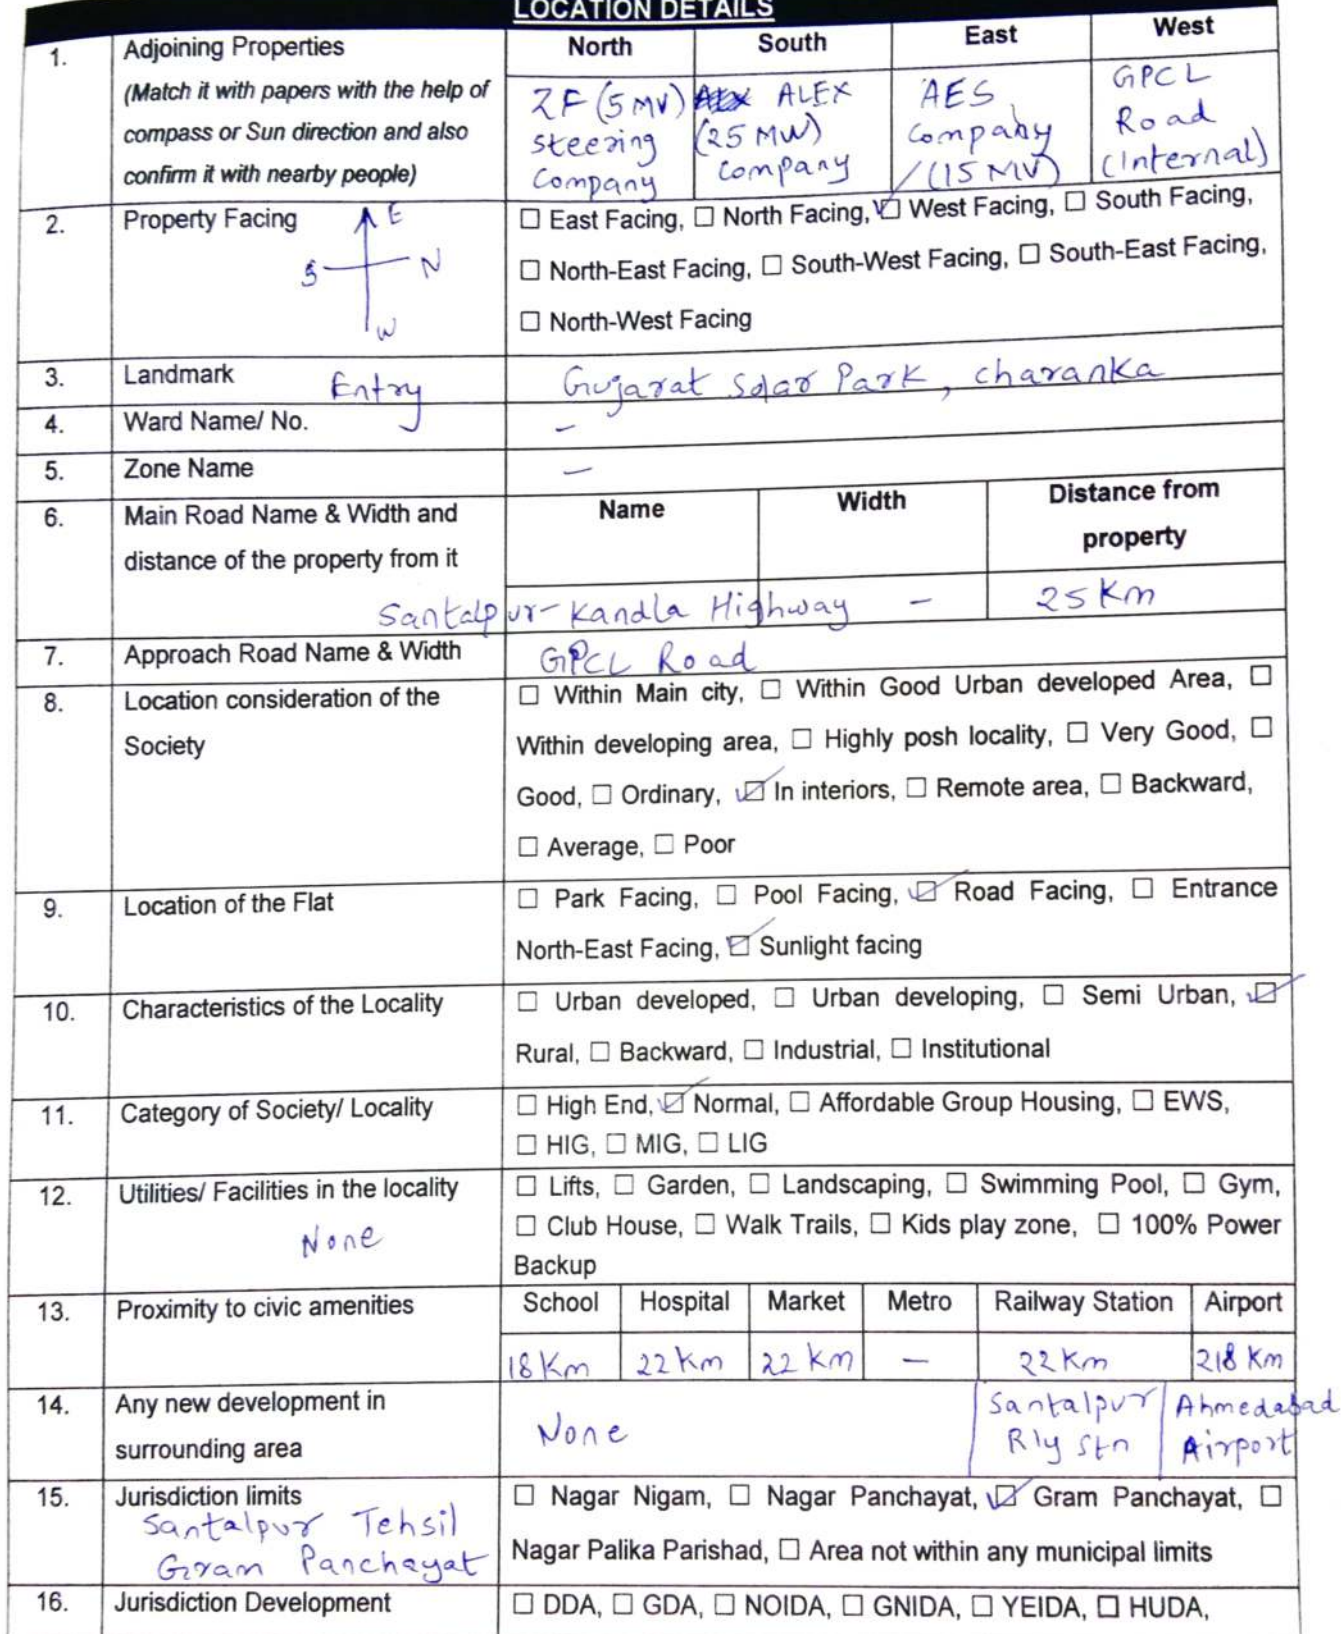 LOCATION DETAILS
1. Adjoining Properties
(Match it with papers with the help of
compass or Sun direction and also
confirm it with nearby people)
North South East West
ZF (5 MV)
steering
Company
ALEX
(25 MW)
Company
AES
Company
(15 MV)
GPCL
Road
(Internal)
2. Property Facing
E
S N
W
☐ East Facing, ☐ North Facing, ☑ West Facing, ☐ South Facing,
☐ North-East Facing, ☐ South-West Facing, ☐ South-East Facing,
☐ North-West Facing
3. Landmark Entry Gujarat Solar Park, charanka
4. Ward Name/ No. –
5. Zone Name –
6. Main Road Name & Width and
distance of the property from it
Name Width Distance from
property
Santalpur-Kandla Highway – 25 Km
7. Approach Road Name & Width GPCL Road
8. Location consideration of the
Society
☐ Within Main city, ☐ Within Good Urban developed Area, ☐
Within developing area, ☐ Highly posh locality, ☐ Very Good, ☐
Good, ☐ Ordinary, ☑ In interiors, ☐ Remote area, ☐ Backward,
☐ Average, ☐ Poor
9. Location of the Flat
☐ Park Facing, ☐ Pool Facing, ☑ Road Facing, ☐ Entrance
North-East Facing, ☑ Sunlight facing
10. Characteristics of the Locality
☐ Urban developed, ☐ Urban developing, ☐ Semi Urban, ☑
Rural, ☐ Backward, ☐ Industrial, ☐ Institutional
11. Category of Society/ Locality
☐ High End, ☑ Normal, ☐ Affordable Group Housing, ☐ EWS,
☐ HIG, ☐ MIG, ☐ LIG
12. Utilities/ Facilities in the locality
None
☐ Lifts, ☐ Garden, ☐ Landscaping, ☐ Swimming Pool, ☐ Gym,
☐ Club House, ☐ Walk Trails, ☐ Kids play zone, ☐ 100% Power
Backup
13. Proximity to civic amenities
School Hospital Market Metro Railway Station Airport
18 Km 22 Km 22 Km – 22 Km 218 Km
14. Any new development in
surrounding area
None
Santalpur
Rly Stn
Ahmedabad
Airport
15. Jurisdiction limits
Santalpur Tehsil
Gram Panchayat
☐ Nagar Nigam, ☐ Nagar Panchayat, ☑ Gram Panchayat, ☐
Nagar Palika Parishad, ☐ Area not within any municipal limits
16. Jurisdiction Development
☐ DDA, ☐ GDA, ☐ NOIDA, ☐ GNIDA, ☐ YEIDA, ☐ HUDA,